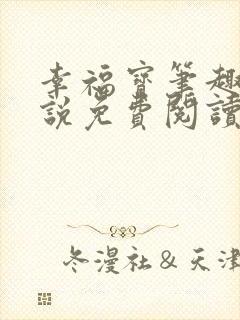 幸福寶筆趣
說免費閱讀
冬漫社&天津